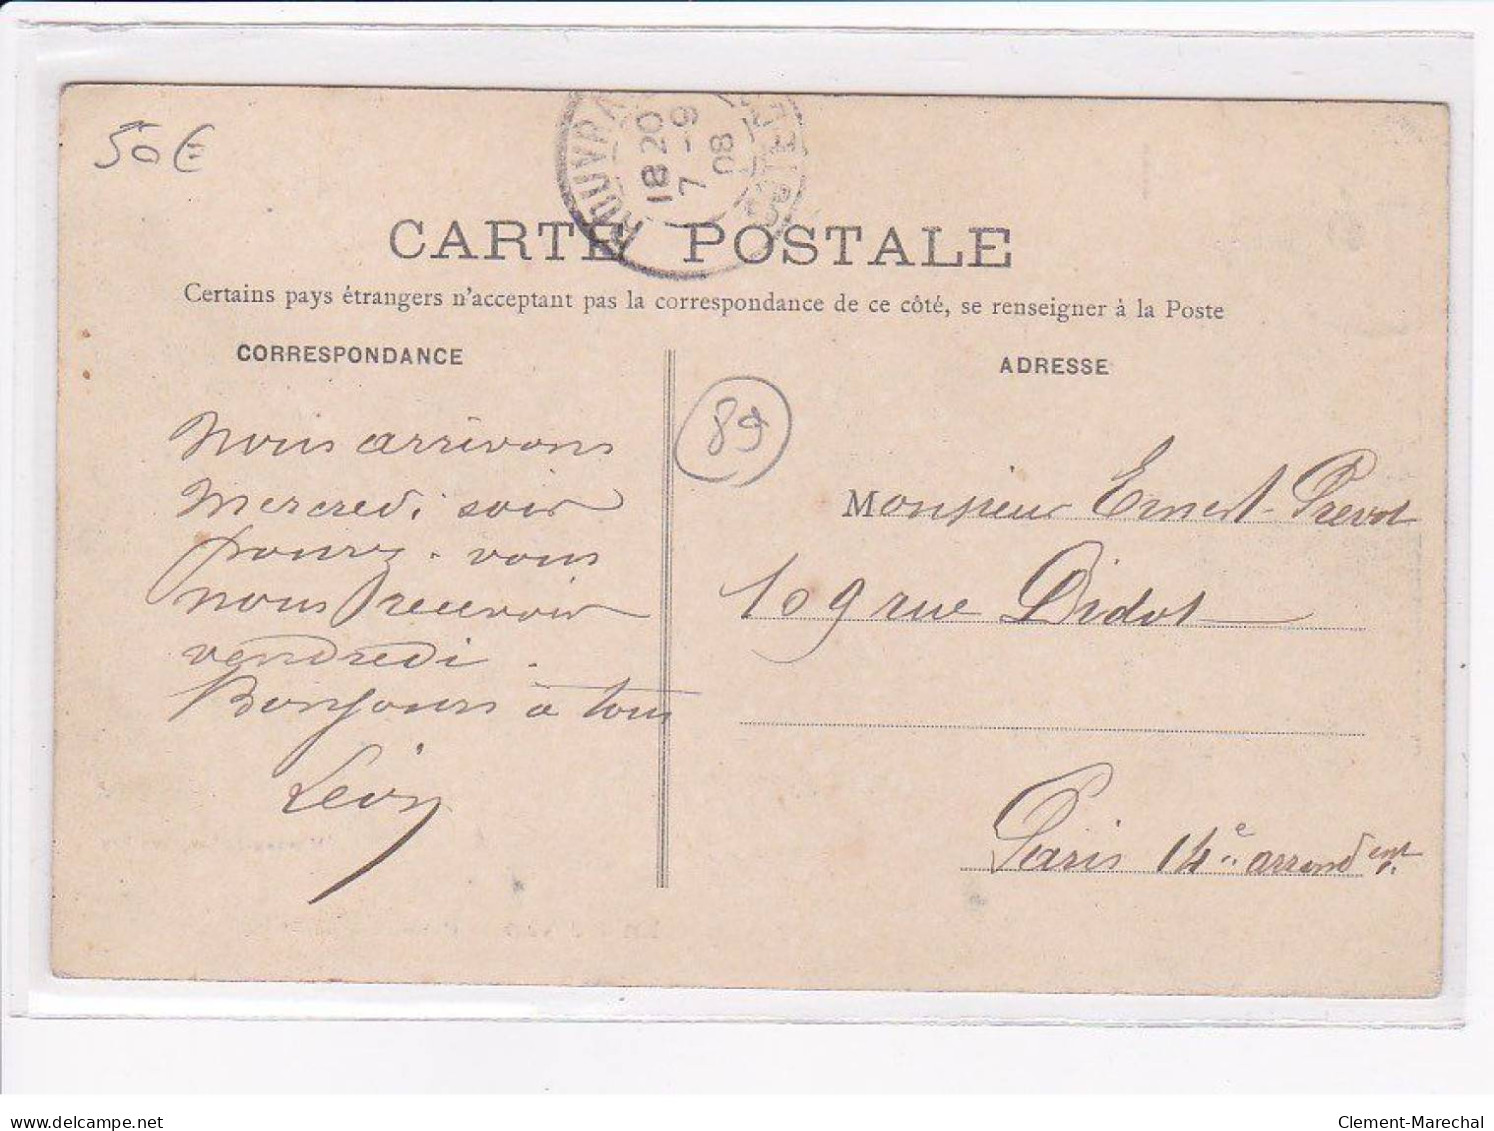 50€
18 20
7 -9
08
CARTE POSTALE
Certains pays étrangers n'acceptant pas la correspondance de ce côté, se renseigner à la Poste
CORRESPONDANCE
ADRESSE
89
Nous arrivons
mercredi soir
pourez-vous
nous recevoir
vendredi.
Bonjours à tous
Monsieur Ernest Prevot
109 rue Didot
Paris 14e arrondent
delcampe.net
Clement-Marechal